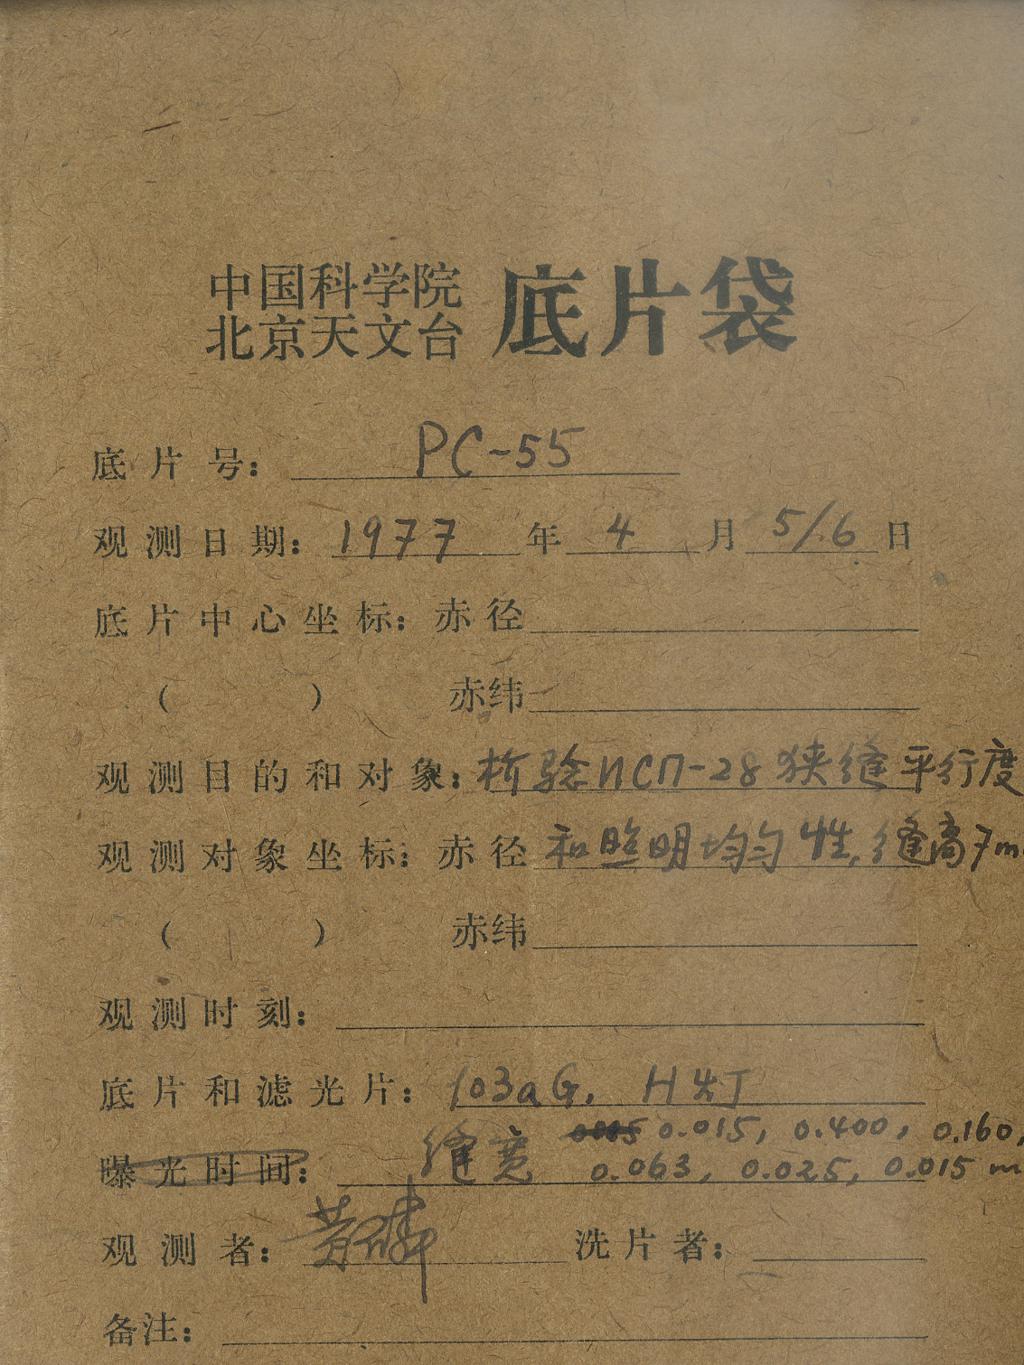 中国科学院
北京天文台 底片袋
底片号: PC-55
观测日期: 1977 年 4 月 5/6 日
底片中心坐标: 赤径
( ) 赤纬
观测目的和对象: 检验ИСП-28狭缝平行度
观测对象坐标: 赤径 和照明均匀性,缝高7m
( ) 赤纬
观测时刻:
底片和滤光片: 103aG, H灯
0.015, 0.400, 0.160,
曝光时间: 缝宽 0.063, 0.025, 0.015 m
观测者: 黄磷 洗片者:
备注: